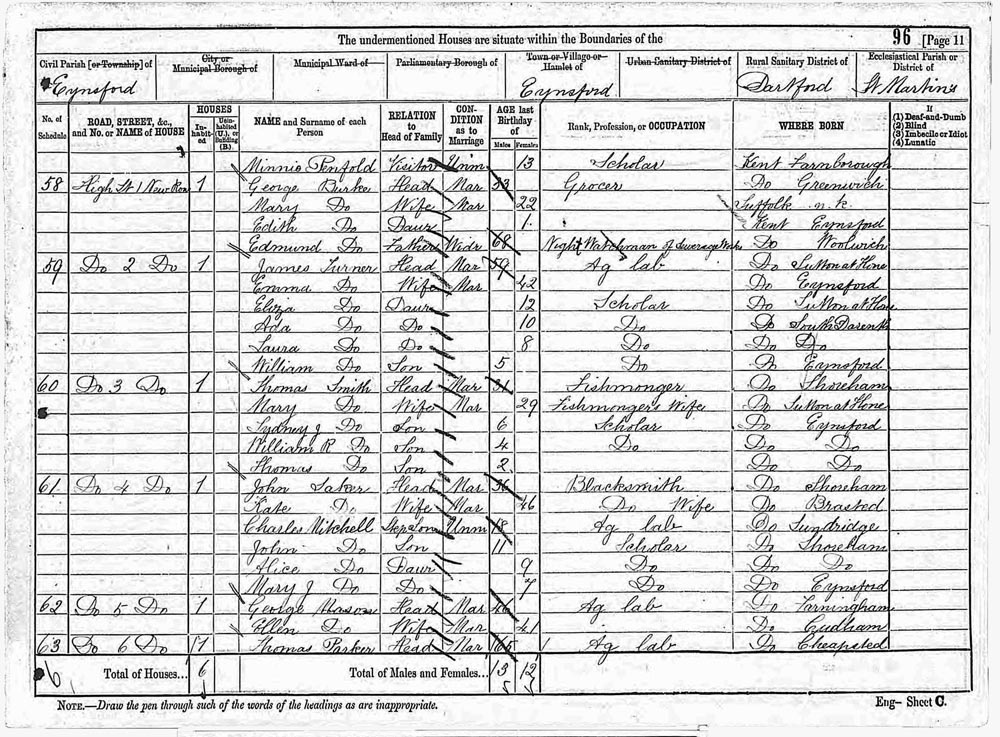 The undermentioned Houses are situate within the Boundaries of the 96 [Page 11
Civil Parish [or Township] of City or Municipal Borough of Municipal Ward of Parliamentary Borough of Town or Village or Hamlet of Urban Sanitary District of Rural Sanitary District of Ecclesiastical Parish or District of
Eynsford Eynsford Dartford St Martins
No. of Schedule ROAD, STREET, &c., and No. or NAME of HOUSE HOUSES Inhabited Uninhabited (U.), or Building (B.) NAME and Surname of each Person RELATION to Head of Family CONDITION as to Marriage AGE last Birthday of Males Females Rank, Profession, or OCCUPATION WHERE BORN If (1) Deaf-and-Dumb (2) Blind (3) Imbecile or Idiot (4) Lunatic
Minnie Penfold Visitor Unm 13 Scholar Kent Farnborough
58 High St 1 New Row 1 George Burke Head Mar 33 Grocer Do Greenwich
Mary Do Wife Mar 22 Suffolk n. k.
Edith Do Daur 1 Kent Eynsford
Edmund Do Father Widr 68 Night Watchman of Sewerage Works Do Woolwich
59 Do 2 Do 1 James Turner Head Mar 59 Ag lab Do Sutton at Hone
Emma Do Wife Mar 42 Do Eynsford
Eliza Do Daur 12 Scholar Do Sutton at Hone
Ada Do Do 10 Do Do South Darenth
Laura Do Do 8 Do Do Do
William Do Son 5 Do Do Eynsford
60 Do 3 Do 1 Thomas Smith Head Mar 31 Fishmonger Do Shoreham
Mary Do Wife Mar 29 Fishmongers Wife Do Sutton at Hone
Sydney J Do Son 6 Scholar Do Eynsford
William R Do Son 4 Do Do Do
Thomas Do Son 2 Do Do
61 Do 4 Do 1 John Saker Head Mar 36 Blacksmith Do Shoreham
Kate Do Wife Mar 46 Do Wife Do Brasted
Charles Mitchell Stepson Unm 18 Ag lab Do Sundridge
John Do Son 11 Scholar Do Shoreham
Alice Do Daur 9 Do Do Do
Mary J Do Do 7 Do Do Eynsford
62 Do 5 Do 1 George Mason Head Mar 46 Ag lab Do Farningham
Ellen Do Wife Mar 41 Do Cudham
63 Do 6 Do 1 Thomas Parker Head Mar 65 Ag lab Do Chepsted
6 Total of Houses... 6 Total of Males and Females... 13 12
NOTE.—Draw the pen through such of the words of the headings as are inappropriate. Eng– Sheet C.